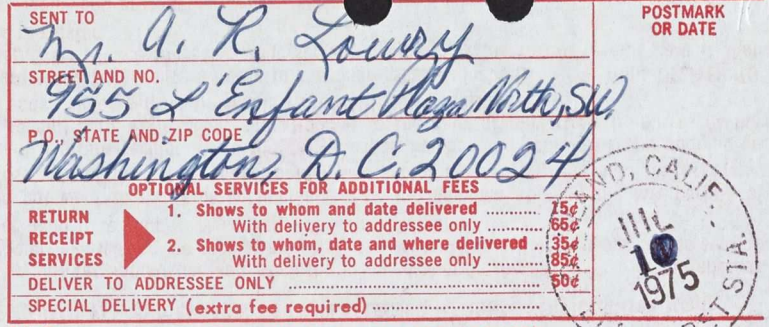 SENT TO
POSTMARK OR DATE
Mr. A. R. Lowry
STREET AND NO.
955 L'Enfant Plaza North, S.W.
P.O., STATE AND ZIP CODE
Washington, D. C. 20024
OPTIONAL SERVICES FOR ADDITIONAL FEES
RETURN RECEIPT SERVICES
1. Shows to whom and date delivered 15¢
With delivery to addressee only 65¢
2. Shows to whom, date and where delivered 35¢
With delivery to addressee only 85¢
DELIVER TO ADDRESSEE ONLY 50¢
SPECIAL DELIVERY (extra fee required)
CALIF.
JUL
10
1975
STA.